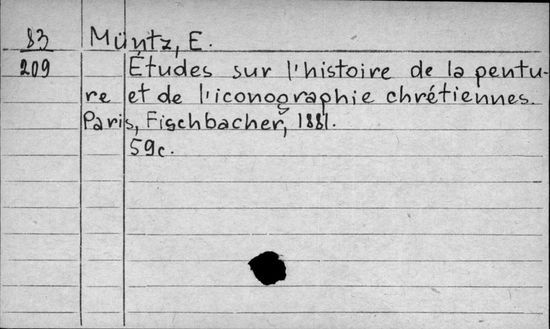 83 Müntz, E.
209 Études sur l'histoire de la pentu-
re et de l'iconographie chrétiennes.
Paris, Fischbacher, 1881.
59c.